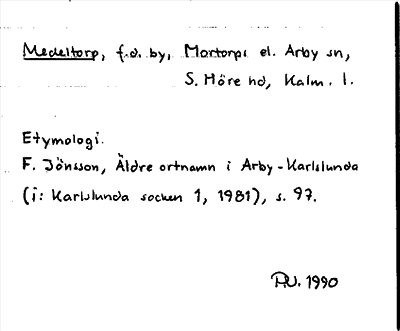 Medeltorp, f.d. by, Mortorps el. Arby sn,
S. Möre hd, Kalm. l.
Etymologi.
F. Jönsson, Äldre ortnamn i Arby-Karlslunda
(i: Karlslunda socken 1, 1981), s. 97.
1990